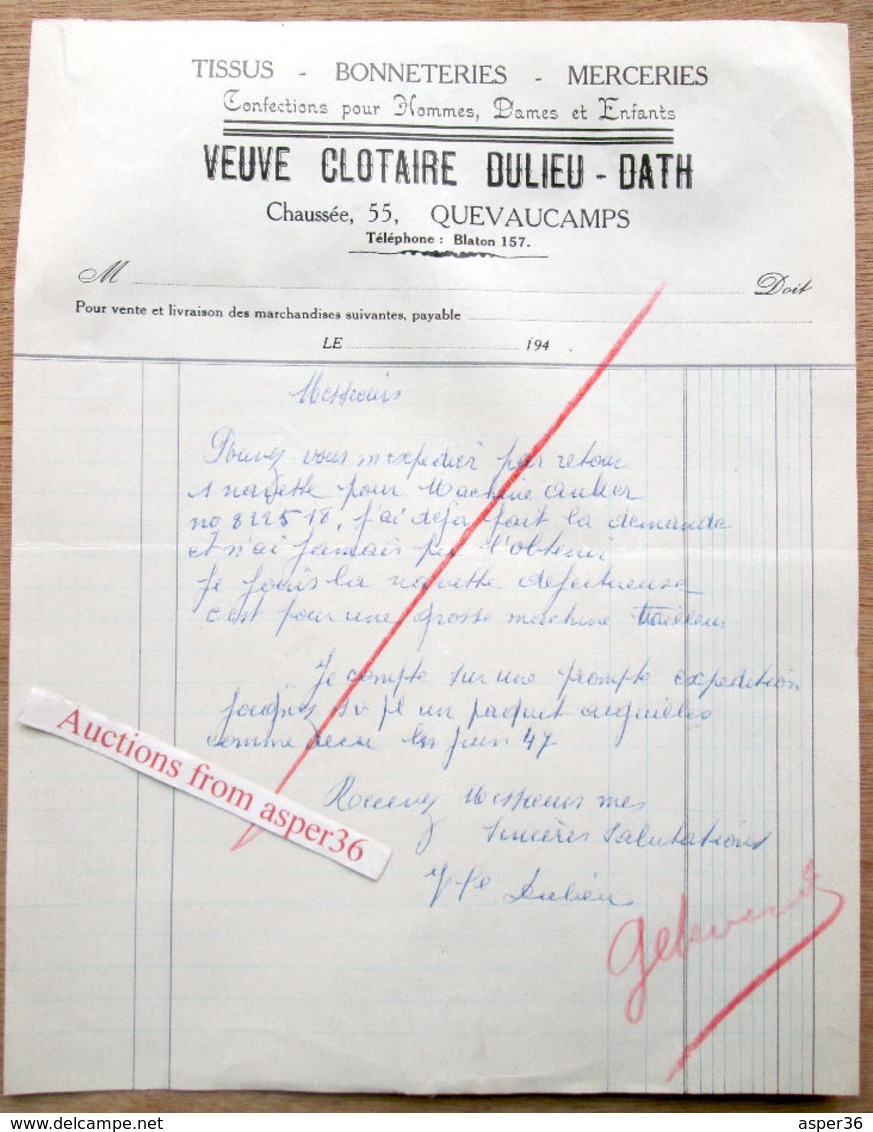 TISSUS - BONNETERIES - MERCERIES
Confections pour Hommes, Dames et Enfants
VEUVE CLOTAIRE DULIEU - DATH
Chaussée, 55, QUEVAUCAMPS
Téléphone : Blaton 157.
M Doit
Pour vente et livraison des marchandises suivantes, payable
LE 194
Messieurs
Pouvez vous m'expedier par retour
1 navette pour Machine
no 822518, j'ai deja fait la demande
et n'ai jamais pu l'obtenir
Je joins la navette defectueuse
c'est pour une grosse machine tailleur
Je compte sur une prompte expedition
joignez svpl un paquet aiguilles
comme juin 47
Recevez Messieurs mes
sincères salutations
Dulieu
Auctions from asper36
asper36